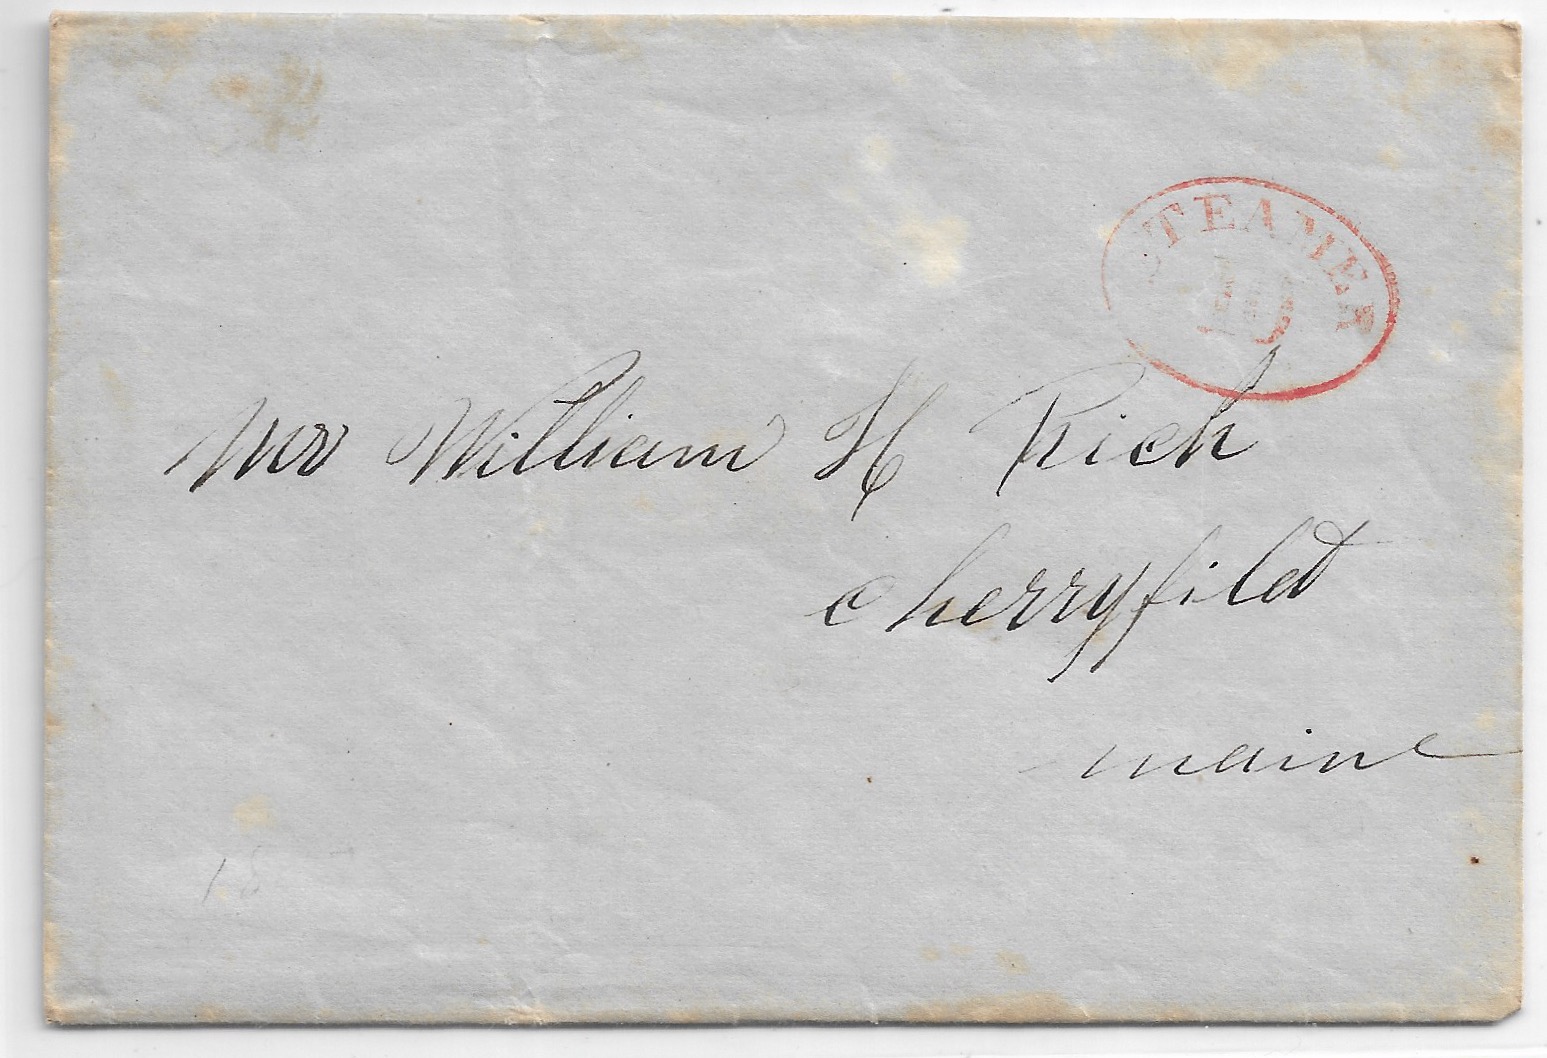 STEAMER
10
Mr William H Rich
Cherryfild
maine